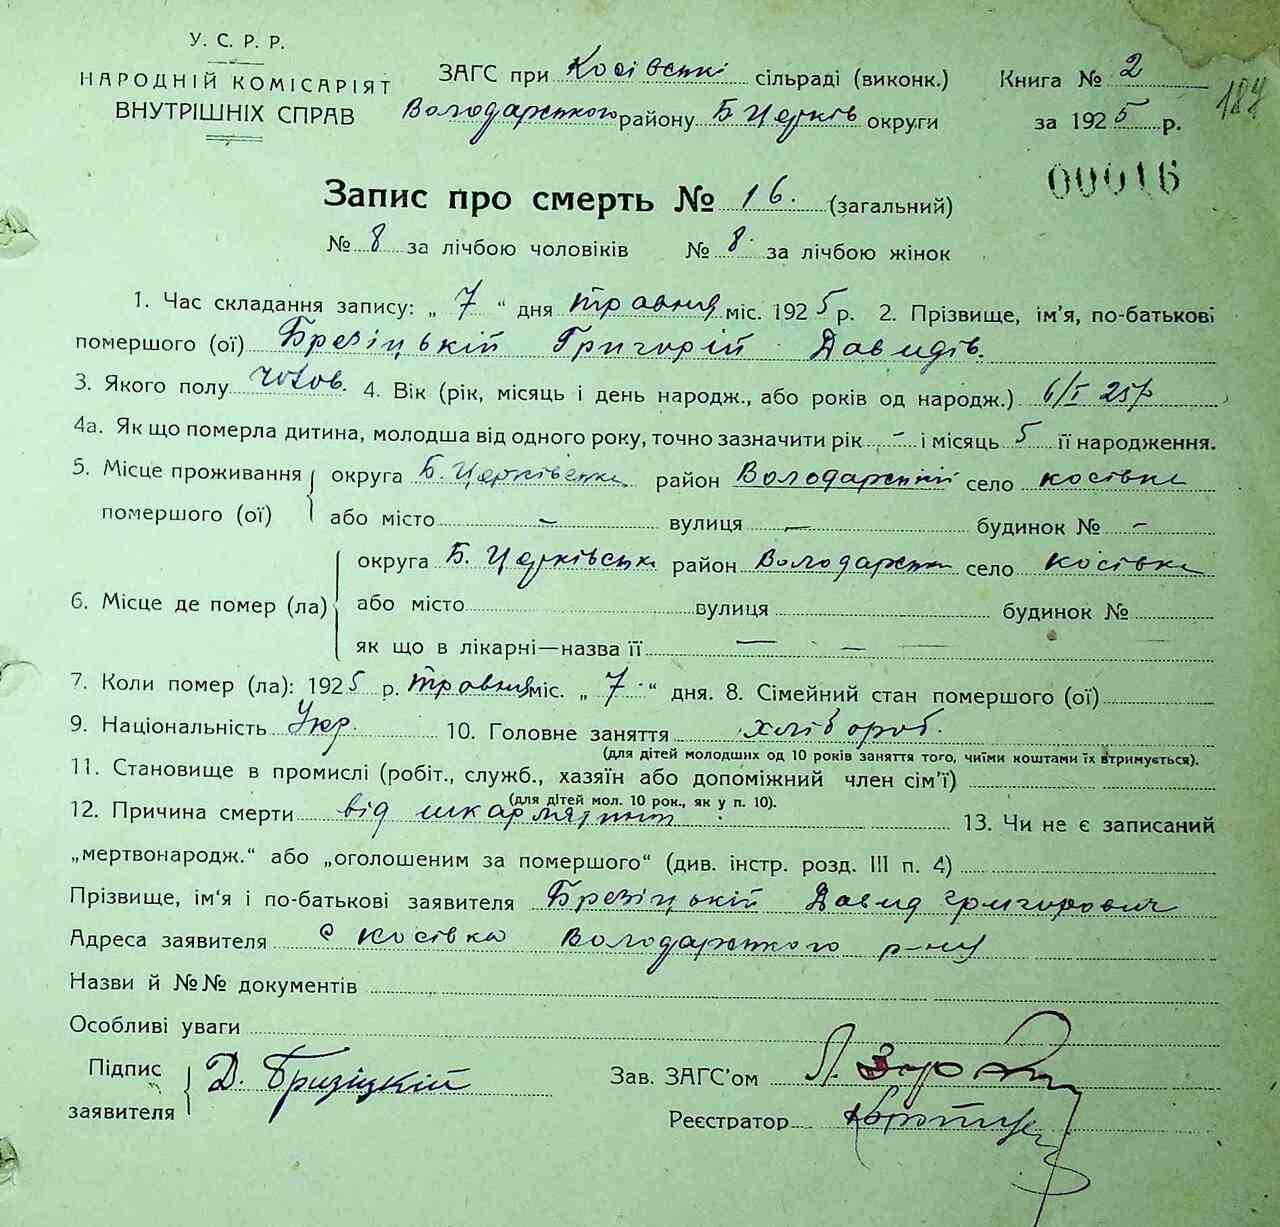 У. С. Р. Р.
НАРОДНІЙ КОМІСАРІЯТ
ВНУТРІШНІХ СПРАВ
ЗАГС при Косівські сільраді (виконк.)
Володарського району Б Церків округи
Книга № 2
за 1925 р.
184
00016
Запис про смерть № 16. (загальний)
№ 8 за лічбою чоловіків № 8. за лічбою жінок
1. Час складання запису: „ 7 “ дня травня міс. 1925 р. 2. Прізвище, ім'я, по-батькові
помершого (ої) Брезіцькій Григорій Давидів.
3. Якого полу чолов. 4. Вік (рік, місяць і день народж., або років од народж.) 6/I 25р
4а. Як що померла дитина, молодша від одного року, точно зазначити рік - і місяць 5 її народження.
5. Місце проживання помершого (ої) округа Б. Церківська район Володарський село косівка
або місто - вулиця - будинок № -
6. Місце де помер (ла) округа Б. Церківськ район Володарськ село косівка
або місто вулиця будинок №
як що в лікарні—назва її — — —
7. Коли помер (ла): 1925 р. травня міс. „ 7 “ дня. 8. Сімейний стан помершого (ої)
9. Національність Укр. 10. Головне заняття хлібороб.
(для дітей молодших од 10 років заняття того, чиїми коштами їх втримується).
11. Становище в промислі (робіт., служб., хазяїн або допоміжний член сім'ї)
(для дітей мол. 10 рок., як у п. 10).
12. Причина смерти від шкарлятини 13. Чи не є записаний
„мертвонародж.“ або „оголошеним за помершого“ (див. інстр. розд. III п. 4)
Прізвище, ім'я і по-батькові заявителя Брезіцькій Давид Григорович
Адреса заявителя с косівка Володарського р-ну
Назви й №№ документів
Особливі уваги
Підпис заявителя Д. Бризіцкій
Зав. ЗАГС'ом
Реєстратор